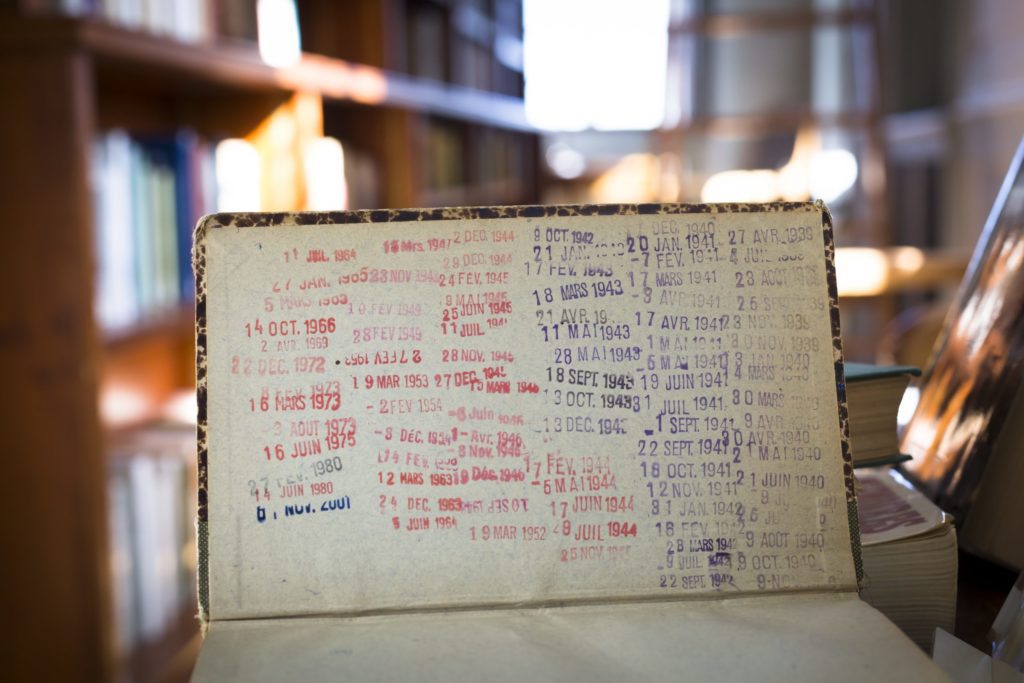 11 JUIL. 1964
27 JAN. 1965
5 MARS 1965
14 OCT. 1966
2 AVR. 1969
22 DEC. 1972
FEV. 1973
16 MARS 1973
3 AOUT 1973
16 JUIN 1975
27 FEV. 1980
14 JUIN 1980
NOV. 2001
Mrs. 1947
28 NOV
10 FEV 1949
28 FEV 1949
27 FEV. 1953
19 MAR 1953
-2 FEV 1954
-3 DÉC. 1954
FEV.
12 MARS 1963
24 DEC. 1963
5 JUIN 1964
2 DEC. 1944
29 DEC. 1944
24 FEV. 1945
9 MAI 1945
25 JUIN 1945
11 JUIL
28 NOV. 1945
27 DEC. 1945
15 MARS 1946
-6 Juin 1946
1-Avr. 1946
-8 Nov. 1946
19 Déc. 1946
19 MAR 1952
9 OCT. 1942
21 JAN.
17 FEV. 1943
18 MARS 1943
21 AVR. 19
11 MAI 1943
28 MAI 1943
18 SEPT. 1943
13 OCT. 1943
-13 DEC. 194
17 FEV. 1944
-6 MAI 1944
17 JUIN 1944
JUIL 1944
25 NOV.
DEC. 1940
20 JAN. 1941
-7 FEV. 1941
17 MARS 1941
AVR 1941
17 AVR. 1941
1 MAI 1941
-6 MAI 1941
19 JUIN 1941
1 JUIL 1941
-1 SEPT. 1941
22 SEPT. 1941
18 OCT. 1941
12 NOV. 1941
31 JAN. 1942
18 FEV
28 MARS 194
-9 JUIL 1942
22 SEPT. 1942
27 AVR. 1939
4 JUIL
23 AOUT 1939
26 SEP 1939
NOV. 1939
30 NOV. 1939
JAN. 1940
4 MARS 1940
30 MARS
9 AVR
30 AVR. 1940
21 MAI 1940
21 JUIN 1940
9 AOUT 1940
9 OCT. 1940
9-NOV